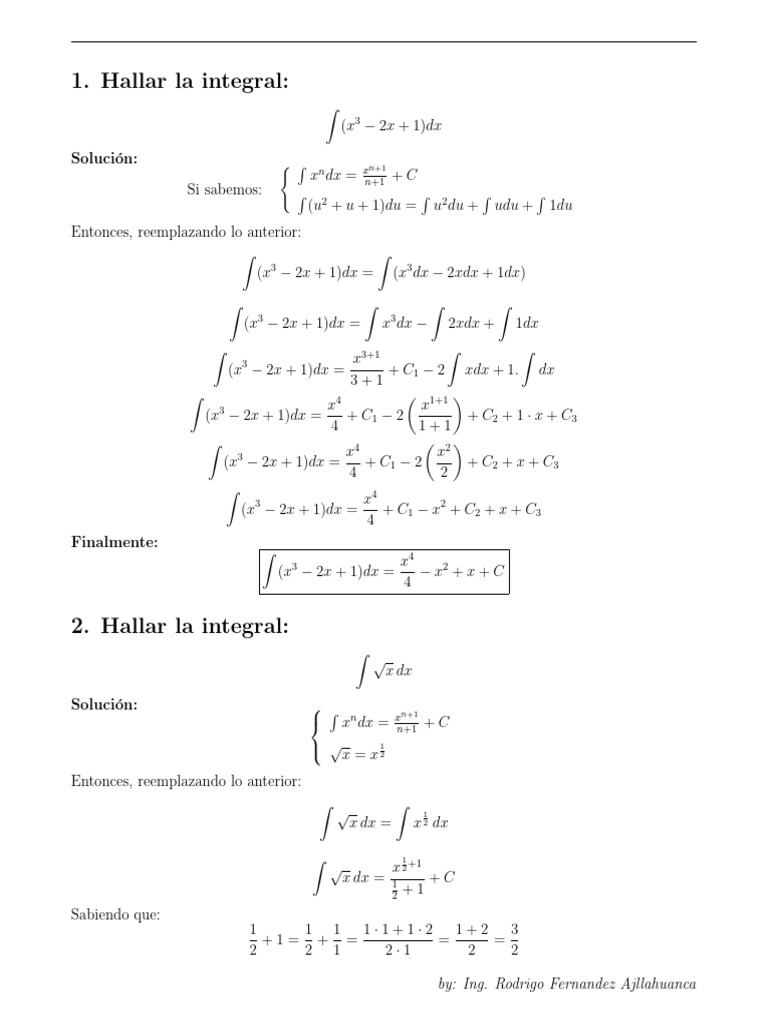 1. Hallar la integral:
∫(x³ − 2x + 1)dx
Solución:
Si sabemos: { ∫ xⁿdx = xⁿ⁺¹/(n+1) + C
∫(u² + u + 1)du = ∫ u²du + ∫ udu + ∫ 1du
Entonces, reemplazando lo anterior:
∫(x³ − 2x + 1)dx = ∫(x³dx − 2xdx + 1dx)
∫(x³ − 2x + 1)dx = ∫ x³dx − ∫ 2xdx + ∫ 1dx
∫(x³ − 2x + 1)dx = x³⁺¹/(3 + 1) + C₁ − 2 ∫ xdx + 1. ∫ dx
∫(x³ − 2x + 1)dx = x⁴/4 + C₁ − 2 (x¹⁺¹/(1 + 1)) + C₂ + 1 · x + C₃
∫(x³ − 2x + 1)dx = x⁴/4 + C₁ − 2 (x²/2) + C₂ + x + C₃
∫(x³ − 2x + 1)dx = x⁴/4 + C₁ − x² + C₂ + x + C₃
Finalmente:
∫(x³ − 2x + 1)dx = x⁴/4 − x² + x + C
2. Hallar la integral:
∫ √x dx
Solución:
{ ∫ xⁿdx = xⁿ⁺¹/(n+1) + C
√x = x^(1/2)
Entonces, reemplazando lo anterior:
∫ √x dx = ∫ x^(1/2) dx
∫ √x dx = x^(1/2+1)/(1/2 + 1) + C
Sabiendo que:
1/2 + 1 = 1/2 + 1/1 = (1 · 1 + 1 · 2)/(2 · 1) = (1 + 2)/2 = 3/2
by: Ing. Rodrigo Fernandez Ajllahuanca